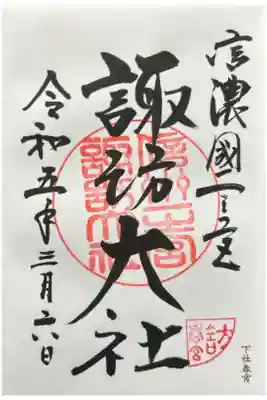 信濃國一之宮
諏訪大社
令和五年三月六日
下社春宮